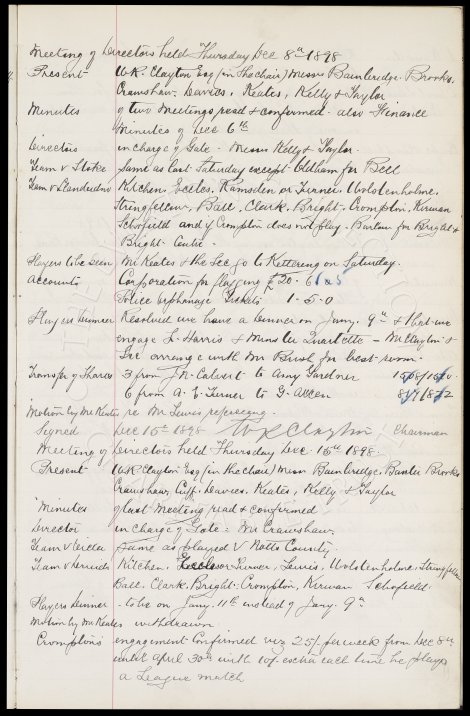 Meeting of Directors held Thursday Dec 8th 1898
Present W.R. Clayton Esq (in the chair) Messrs Bainbridge. Brooks.
Crawshaw. Davies. Keates, Kelly & Taylor
Minutes of two Meetings read & confirmed - also Finance
Minutes of Dec 6th
Directors in charge of Gate - Messrs Kelly & Taylor.
Team v Stoke same as last Saturday except Oldham for Bell
Team v Llandudno Kitchen. Eccles, Ramsden or Turner. Wolstenholme.
Stringfellow, Ball, Clark. Bright. Crompton. Kirwan
Schofield and if Crompton does not play - Barlow for Bright &
Bright Centre.
Players to be seen Mr Keates & the Sec go to Kettering on Saturday.
Accounts Corporation for flagging £20. 6
Police Orphanage Tickets 1 - 5 - 0
Players Dinner Resolved we have a Dinner on Jany. 9th & that we
engage L. Harris & Minster Quartette - Mr Clayton &
Sec arrange with Mr Bush for best room.
Transfer of Shares 3 from J.R. Calvert to Amy Gardner
6 from A. E. Turner to G. Allen
Motion by Mr Keates re Mr Lewis refereeing.
Signed Dec 15th 1898 W R Clayton Chairman
Meeting of Directors held Thursday Dec. 15th 1898.
Present W.R. Clayton Esq (in the chair) Messrs Bainbridge. Baxter Brooks
Crawshaw, Cuff. Davies. Keates, Kelly & Taylor
Minutes of last Meeting read & confirmed
Director in charge of Gate: Mr Crawshaw
Team v same as played v Notts County.
Team v Kitchen. Eccles or Turner, Lewis, Wolstenholme, Stringfellow
Ball. Clark. Bright. Crompton, Kirwan Schofield.
Players Dinner - to be on Jany. 11th instead of Jany. 9th
Motion by Mr Keates withdrawn.
Cromptons engagement confirmed viz 25/- per week from Dec 8th
until April 30th with 10/- extra each time he plays
a League match